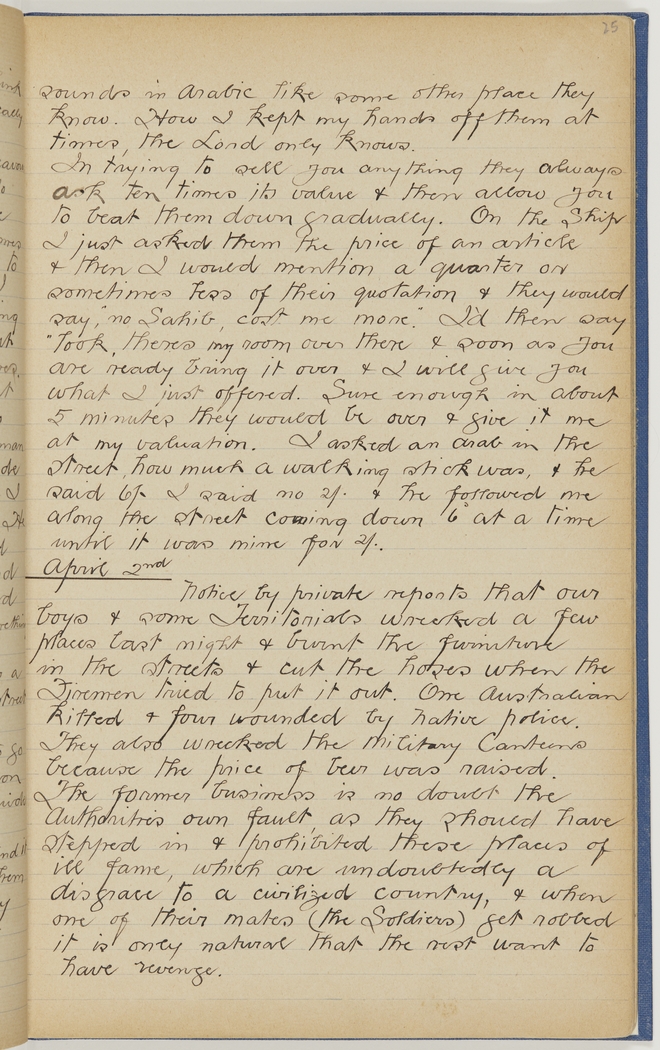 25
sounds in Arabic like some other place they
know. How I kept my hands off them at
times, the Lord only knows.
In trying to sell you anything they always
ask ten times its value & then allow you
to beat them down gradually. On the Ship
I just asked them the price of an article
& then I would mention a quarter or
sometimes less of their quotation & they would
say, "no Sahib, cost me more." I'd then say
"look, theres my room over there & soon as you
are ready bring it over & I will give you
what I just offered. Sure enough in about
5 minutes they would be over & give it me
at my valuation. I asked an arab in the
street, how much a walking stick was, & he
said 6/- I said no 2/- & he followed me
along the street coming down 6d at a time
until it was mine for 2/-.
April 2nd
Notice by private reports that our
boys & some Territorials wrecked a few
places last night & burnt the furniture
in the streets & cut the hoses when the
Firemen tried to put it out. One Australian
killed & four wounded by native police.
They also wrecked the Military Canteens
because the price of beer was raised.
The former business is no doubt the
Authorities own fault, as they should have
stepped in & prohibited these places of
ill fame, which are undoubtedly a
disgrace to a civilized country, & when
one of their mates (the Soldiers) get robbed
it is only natural that the rest want to
have revenge.